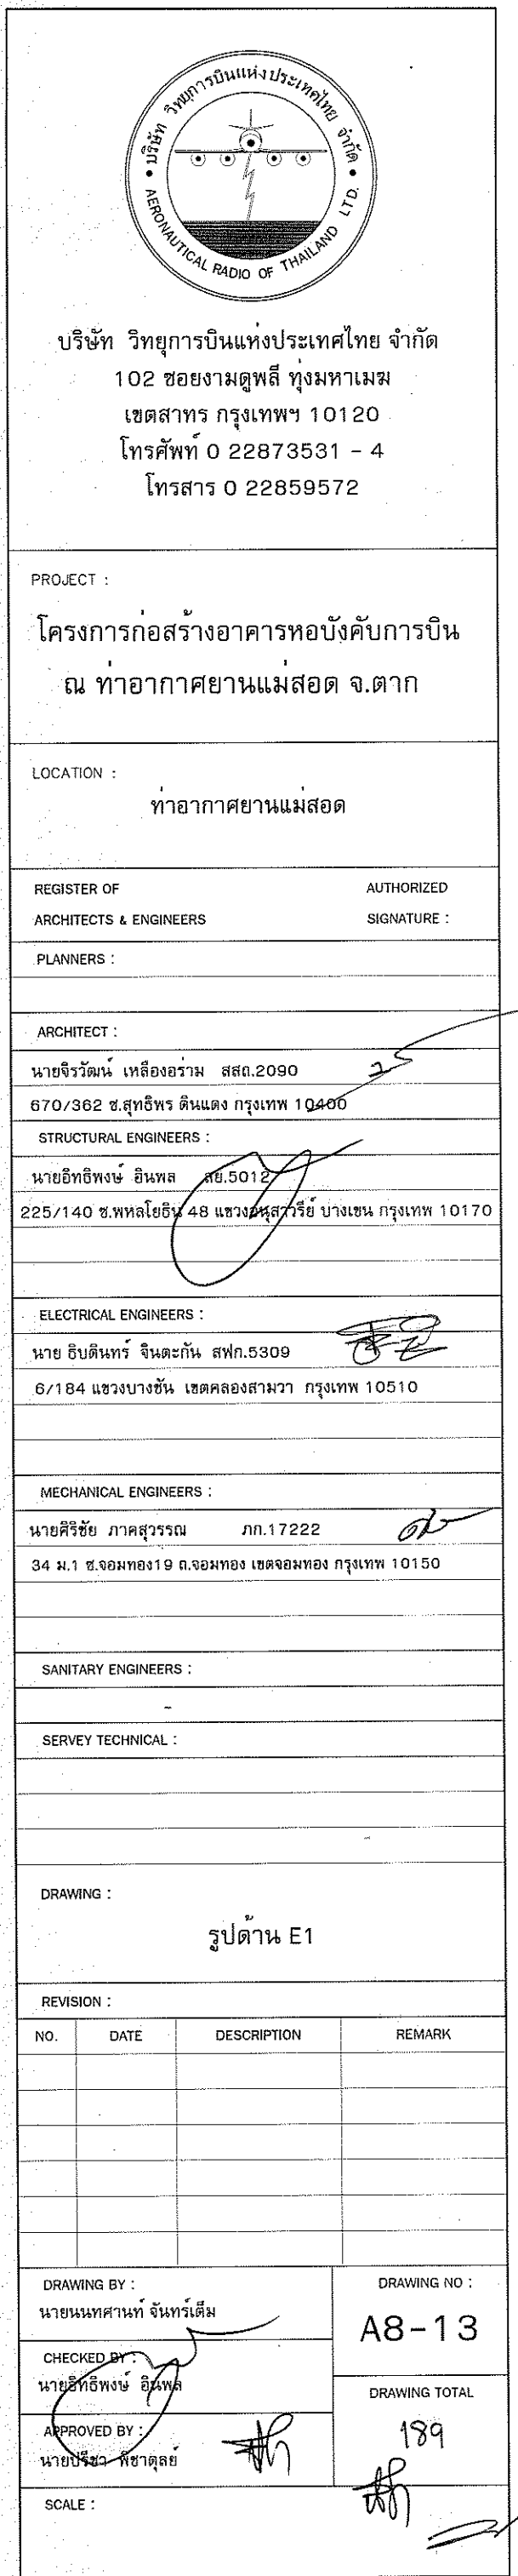 • บริษัท วิทยุการบินแห่งประเทศไทย จำกัด •
AERONAUTICAL RADIO OF THAILAND LTD.
บริษัท วิทยุการบินแห่งประเทศไทย จำกัด
102 ซอยงามดูพลี ทุ่งมหาเมฆ
เขตสาทร กรุงเทพฯ 10120
โทรศัพท์ 0 22873531 - 4
โทรสาร 0 22859572
PROJECT :
โครงการก่อสร้างอาคารหอบังคับการบิน
ณ ท่าอากาศยานแม่สอด จ.ตาก
LOCATION :
ท่าอากาศยานแม่สอด
REGISTER OF AUTHORIZED
ARCHITECTS & ENGINEERS SIGNATURE :
PLANNERS :
ARCHITECT :
นายจิรวัฒน์ เหลืองอร่าม สสถ.2090
670/362 ซ.สุทธิพร ดินแดง กรุงเทพ 10400
STRUCTURAL ENGINEERS :
นายอิทธิพงษ์ อินพล สย.5012
225/140 ซ.พหลโยธิน 48 แขวงอนุสาวรีย์ บางเขน กรุงเทพ 10170
ELECTRICAL ENGINEERS :
นาย ธิบดินทร์ จินตะกัน สฟก.5309
6/184 แขวงบางชัน เขตคลองสามวา กรุงเทพ 10510
MECHANICAL ENGINEERS :
นายศิริชัย ภาคสุวรรณ ภก.17222
34 ม.1 ซ.จอมทอง19 ถ.จอมทอง เขตจอมทอง กรุงเทพ 10150
SANITARY ENGINEERS :
-
SERVEY TECHNICAL :
DRAWING :
รูปด้าน E1
REVISION :
NO. DATE DESCRIPTION REMARK
DRAWING BY :
นายนนทศานท์ จันทร์เต็ม
DRAWING NO :
A8-13
CHECKED BY :
นายอิทธิพงษ์ อินพล
DRAWING TOTAL
189
APPROVED BY :
นายปรีชา พิชาตุลย์
SCALE :